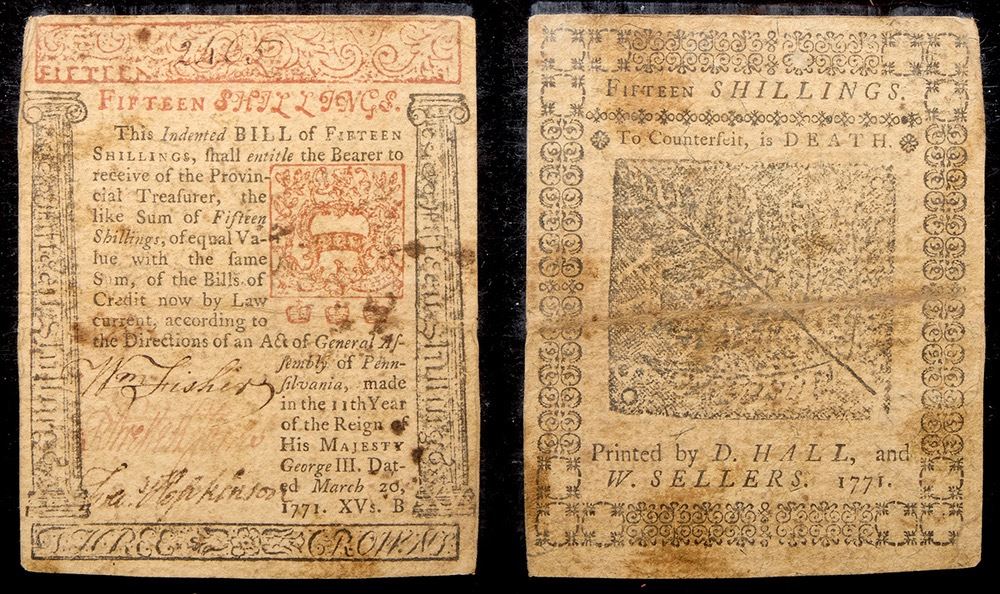 2405
FIFTEEN
FIFTEEN SHILLINGS.
This Indented BILL of FIFTEEN
SHILLINGS, ſhall entitle the Bearer to
receive of the Provin-
cial Treaſurer, the
like Sum of Fifteen
Shillings, of equal Va-
lue with the ſame
Sum, of the Bills of
Credit now by Law
current, according to
the Directions of an Act of General Aſ-
ſembly of Penn-
ſilvania, made
in the 11th Year
of the Reign of
His MAJESTY
George III. Dat-
ed March 20,
1771. XVs. B
Wm Fisher
Fifteen Shillings
Fifteen Shillings
THREE CROWNS
FIFTEEN SHILLINGS.
To Counterfeit, is DEATH.
Printed by D. HALL, and
W. SELLERS. 1771.